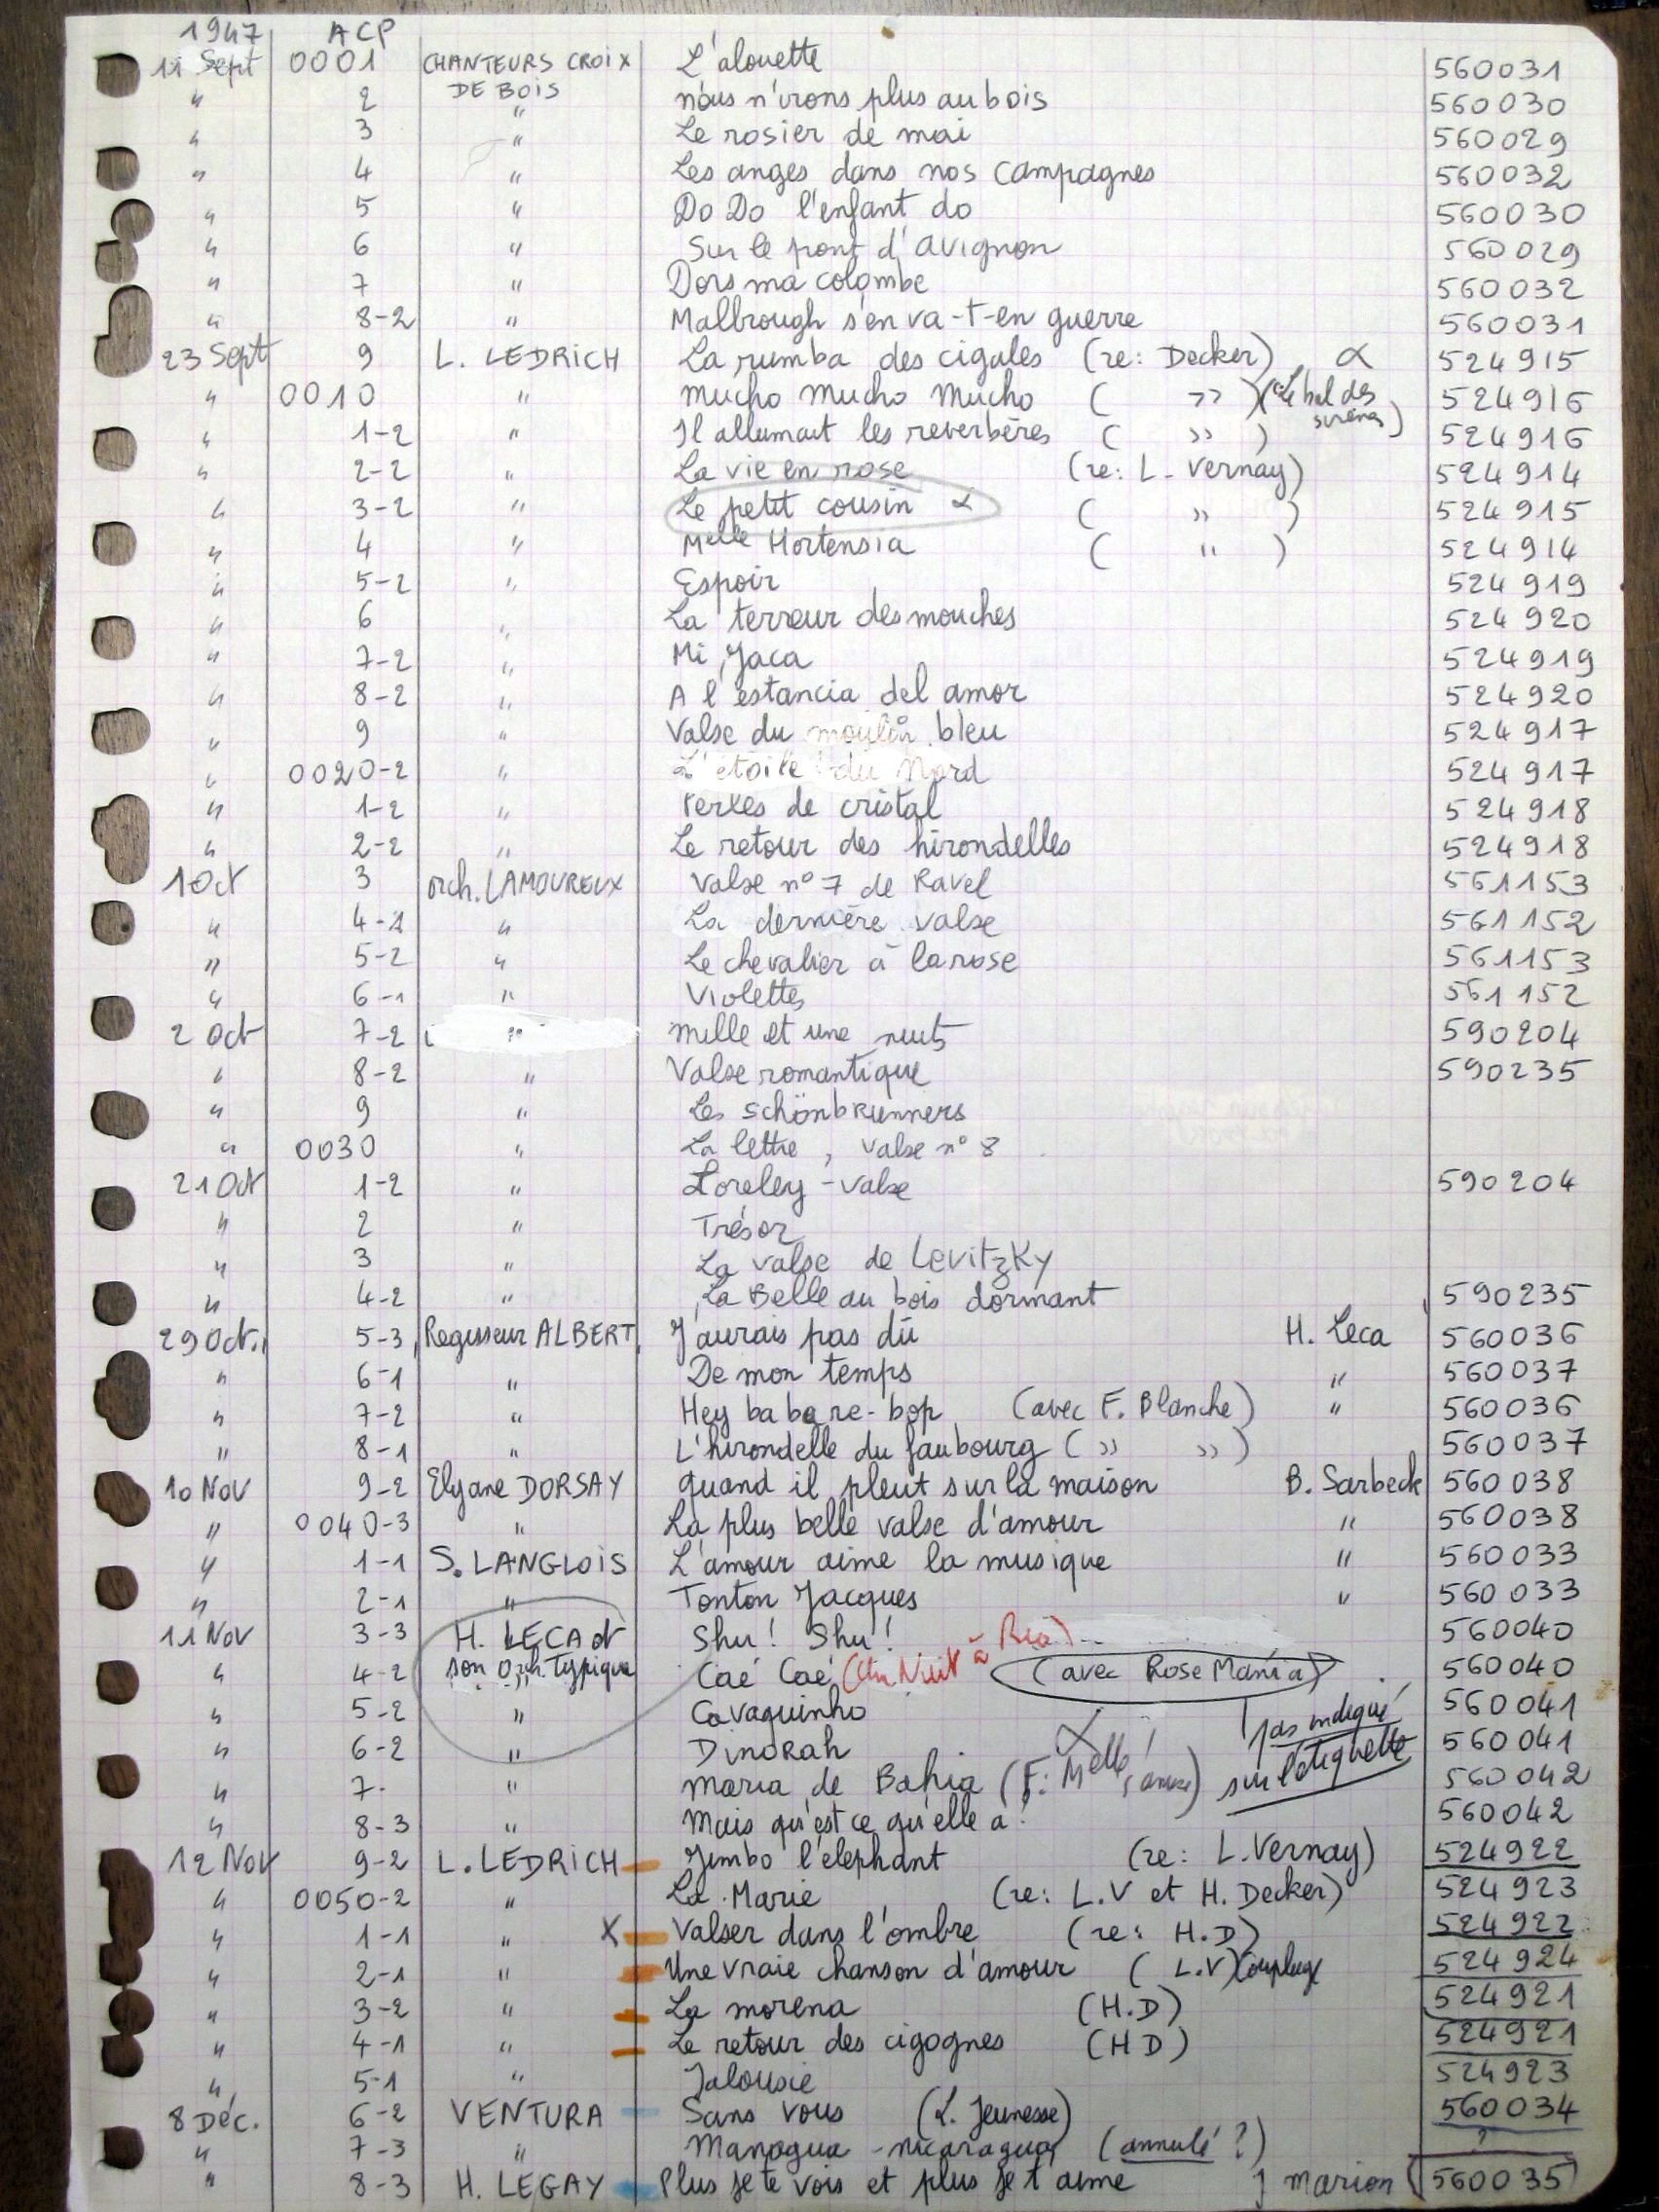 1947 ACP
11 Sept 0001 CHANTEURS CROIX L'alouette 560031
DE BOIS
" 2 " nous n'irons plus au bois 560030
" 3 " Le rosier de mai 560029
" 4 " Les anges dans nos campagnes 560032
" 5 " Do Do l'enfant do 560030
" 6 " Sur le pont d'avignon 560029
" 7 " Dors ma colombe 560032
" 8-2 " Malbrough s'en va-t-en guerre 560031
23 Sept 9 L. LEDRICH La rumba des cigales (re: Decker) α 524915
" 0010 " Mucho Mucho Mucho ( " ) (Le bal des sirènes) 524916
" 1-2 " Il allumait les reverbères ( " ) 524916
" 2-2 " La vie en rose (re: L. Vernay) 524914
" 3-2 " Le petit cousin α ( " ) 524915
" 4 " Melle Hortensia ( " ) 524914
" 5-2 " Espoir 524919
" 6 " La terreur des mouches 524920
" 7-2 " Mi Jaca 524919
" 8-2 " A l'estancia del amor 524920
" 9 " Valse du moulin bleu 524917
" 0020-2 " L'étoile du Nord 524917
" 1-2 " Perles de cristal 524918
" 2-2 " Le retour des hirondelles 524918
1 Oct 3 orch. LAMOUREUX Valse n° 7 de Ravel 561153
" 4-1 " La dernière valse 561152
" 5-2 " Le chevalier à la rose 561153
" 6-1 " Violettes 561152
2 Oct 7-2 " mille et une nuits 590204
" 8-2 " Valse romantique 590235
" 9 " Les schönbrunners
" 0030 " La lettre, valse n° 8
21 Oct 1-2 " Loreley-valse 590204
" 2 " Trésor
" 3 " La valse de Levitzky
" 4-2 " La Belle au bois dormant 590235
29 Oct. 5-3 Regisseur ALBERT J'aurais pas dû H. Leca 560036
" 6-1 " De mon temps " 560037
" 7-2 " Hey ba ba re-bop (avec F. Blanche) " 560036
" 8-1 " L'hirondelle du faubourg ( " " ) 560037
10 Nov 9-2 Elyane DORSAY quand il pleut sur la maison B. Sarbeck 560038
" 0040-3 " La plus belle valse d'amour " 560038
" 1-1 S. LANGLOIS L'amour aime la musique " 560033
" 2-1 " Tonton Jacques " 560033
11 Nov 3-3 H. LECA et Shu! Shu! 560040
" 4-2 son Orch. Typique Caé Caé (Un Nuit à Rio) (avec Rose Mania) 560040
" 5-2 " Cavaquinho 560041
" 6-2 " Dinorah α ! pas indiqué 560041
" 7. " Maria de Bahia (F: Melle s'amuse) sur l'étiquette 560042
" 8-3 " Mais qu'est ce qu'elle a! 560042
12 Nov 9-2 L. LEDRICH Jimbo l'elephant (re: L. Vernay) 524922
" 0050-2 " La Marie (re: L.V et H. Decker) 524923
" 1-1 " X Valser dans l'ombre (re: H.D) 524922
" 2-1 " Une vraie chanson d'amour (L.V) Couplage 524924
" 3-2 " La morena (H.D) 524921
" 4-1 " Le retour des cigognes (HD) 524921
" 5-1 " Jalousie 524923
8 Déc. 6-2 VENTURA Sans vous (L. Jeunesse) 560034
" 7-3 " Managua - nicaragua (annulé ?) ?
" 8-3 H. LEGAY Plus je te vois et plus je t'aime J Marion 560035